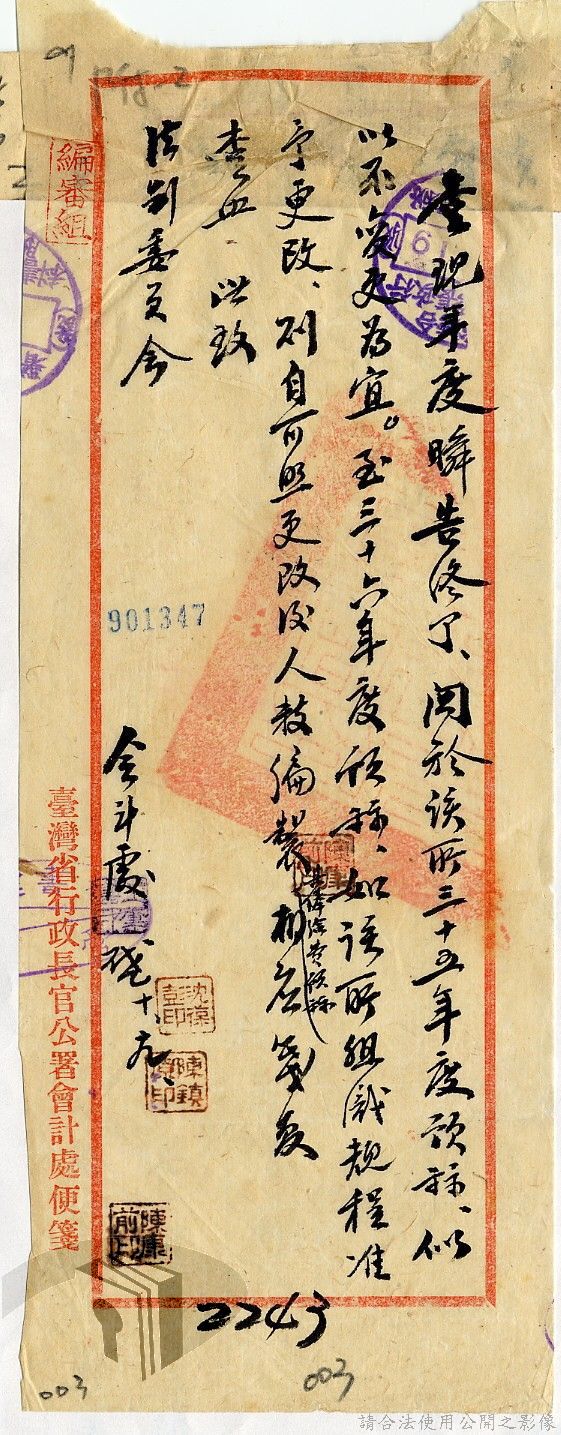 查現年度瞬告終了、関於該所三十五年度預祘、似
以不變更為宜。至三十六年度預祘、如該所組織規程准
予更改、則自可照更改後人数編製
其經臨費預祘
相應箋复
查照 此致
法制委員会
会計處 十、九、
臺灣省行政長官公署會計處便箋
編審組
901347
沈葆彭印
陳鎮印
陳康前印
陳康前
2243
003
003
請合法使用公開之影像